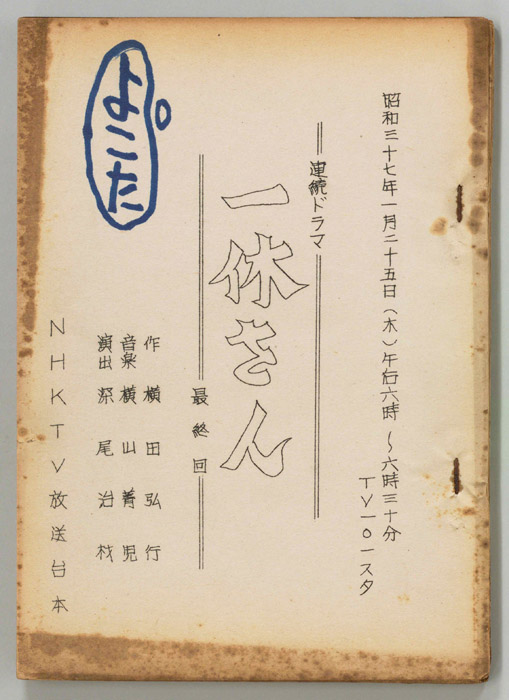 昭和三十七年一月二十五日(木)午后六時〜六時三十分
TV一〇一スタ
連続ドラマ
一休さん
最終回
作 横田弘行
音楽 横山菁児
演出
よこた
NHKTV放送台本